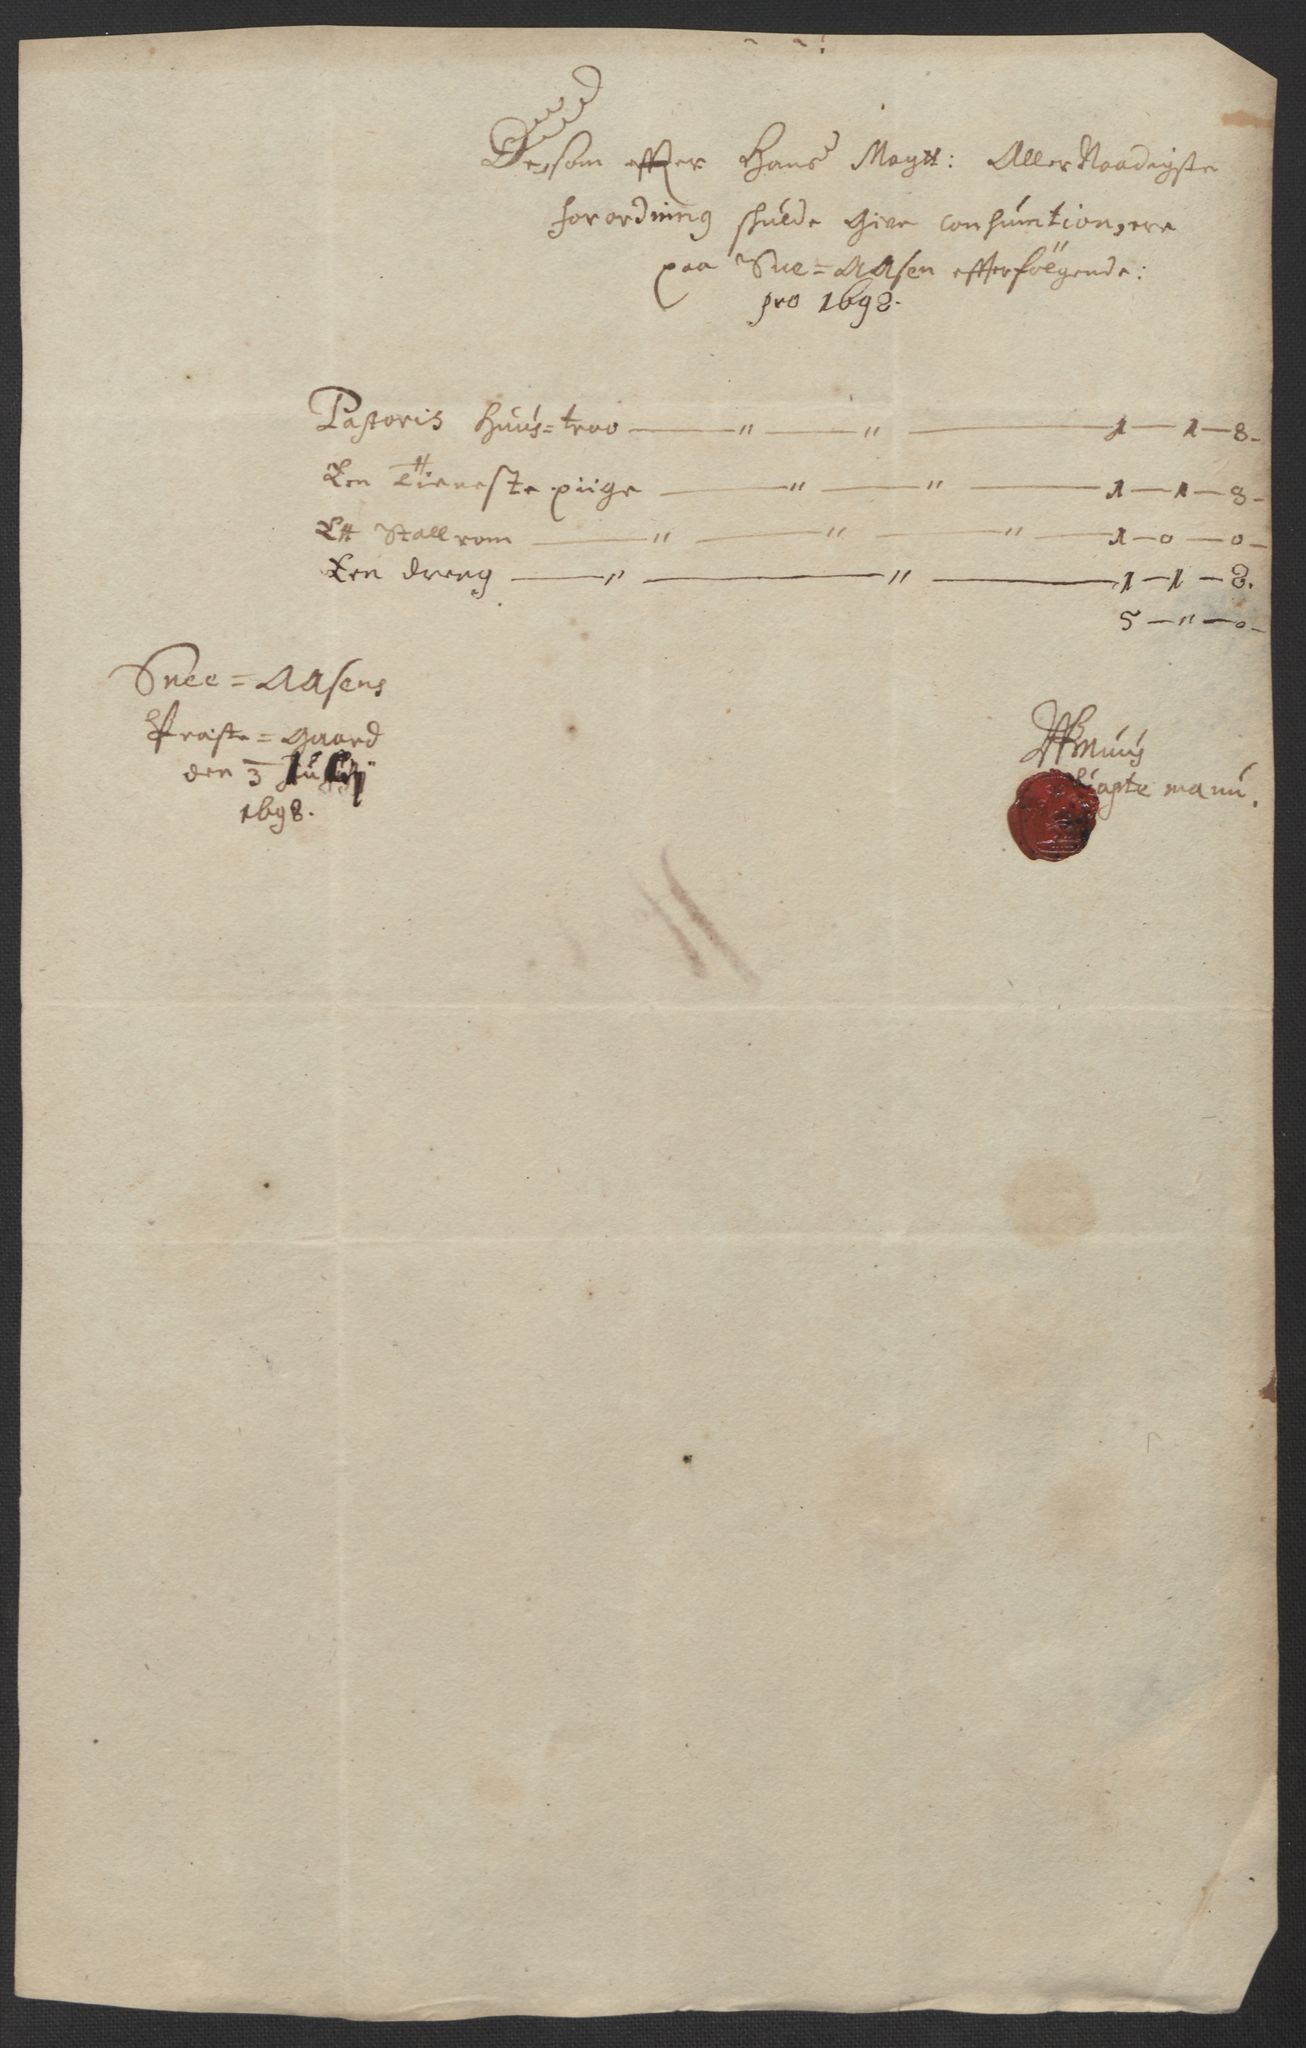 De som effter Hans Maytt: Aller Naadigste
forordning skulde Give Consumtion, ere
paa Snee=AAsen effterfölgende:
pro 1698.
Pastoris Huús=troo — " — " — 1 — 1 — 8 -
Een Tieneste piige — " — " — 1 — 1 — 8 -
Ett Stallrom — " — " — " — 1 — 0 — 0 -
Een dreng — " — " — 1 — 1 — 8.
5 — " — 0 -
Snee=AAsens
Præste=Gaard
den 3 Julij
1698.
Muús
manú.